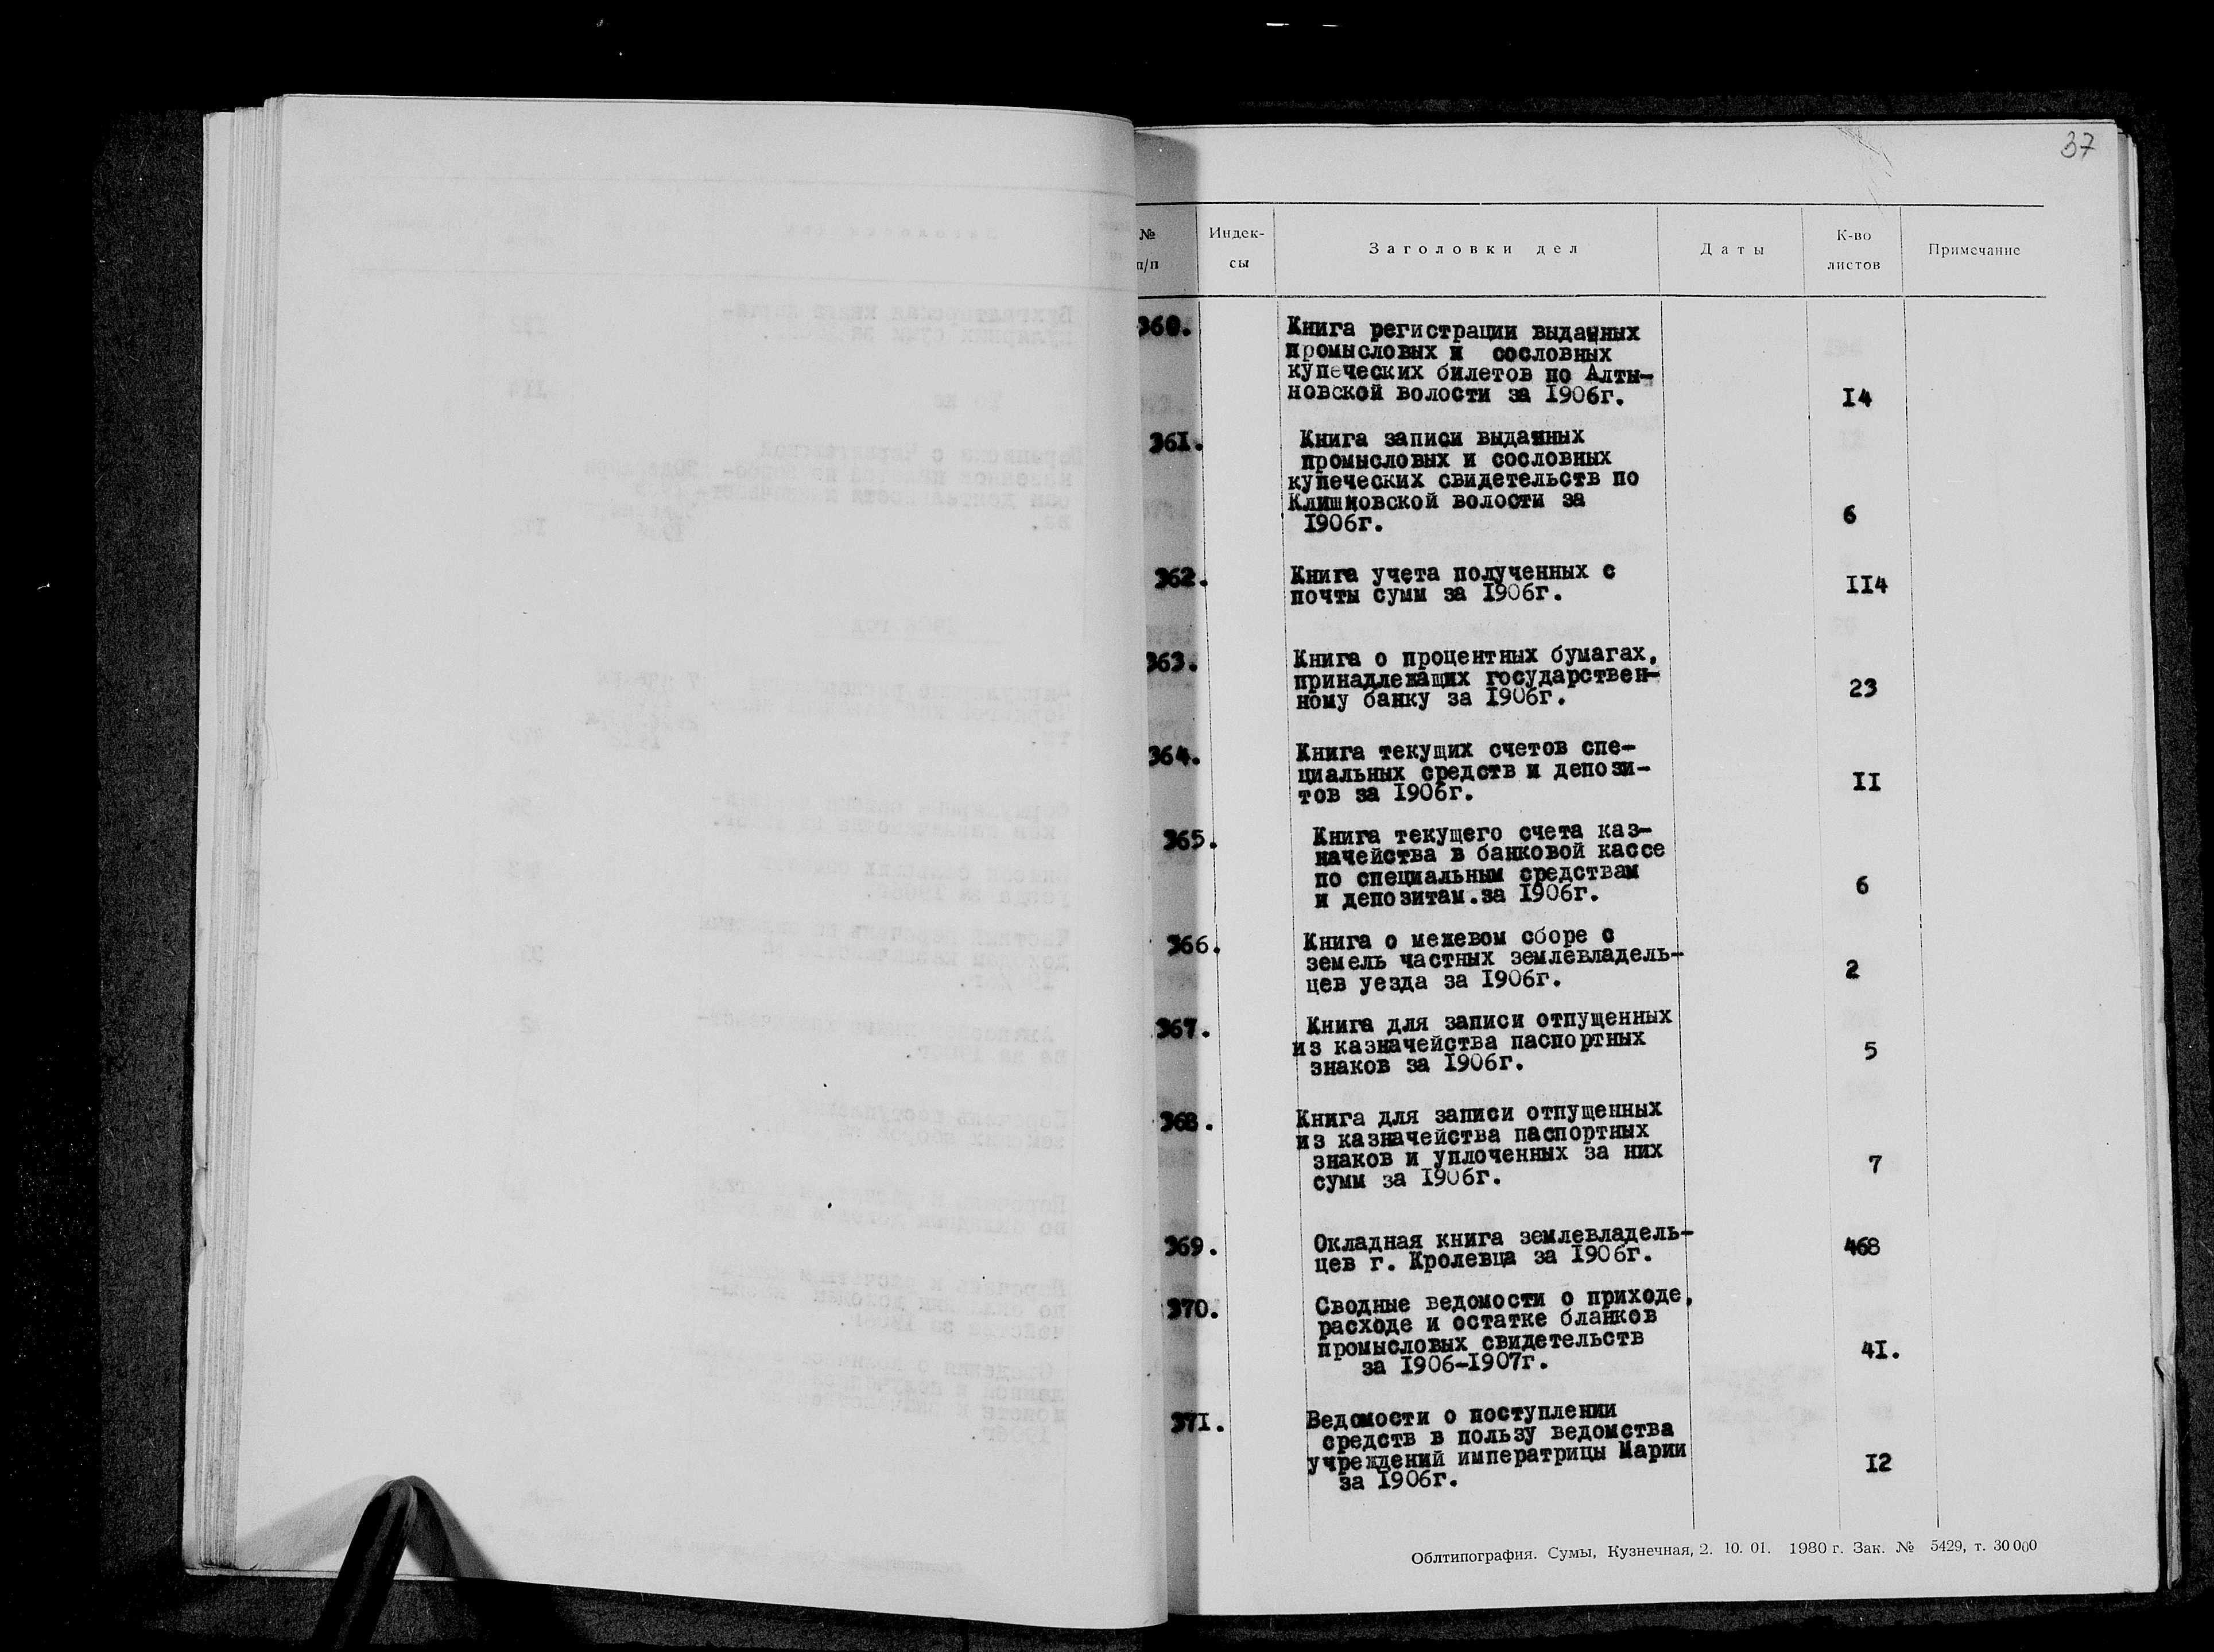 37
№ п/п Индек-сы Заголовки дел Даты К-во листов Примечание
360. Книга регистрации выданных
промысловых и сословных
купеческих билетов по Алты-
новской волости за 1906г. 14
361. Книга записи выданных
промысловых и сословных
купеческих свидетельств по
Клишковской волости за
1906г. 6
362. Книга учета полученных с
почты сумм за 1906г. 114
363. Книга о процентных бумагах,
принадлежащих государствен-
ному банку за 1906г. 23
364. Книга текущих счетов спе-
циальных средств и депози-
тов за 1906г. 11
365. Книга текущего счета каз-
начейства в банковой кассе
по специальным средствам
и депозитам.за 1906г. 6
366. Книга о межевом сборе с
земель частных землевладель-
цев уезда за 1906г. 2
367. Книга для записи отпущенных
из казначейства паспортных
знаков за 1906г. 5
368. Книга для записи отпущенных
из казначейства паспортных
знаков и уплоченных за них
сумм за 1906г. 7
369. Окладная книга землевладель-
цев г. Кролевца за 1906г. 468
370. Сводные ведомости о приходе,
расходе и остатке бланков
промысловых свидетельств
за 1906-1907г. 41.
371. Ведомости о поступлении
средств в пользу ведомства
учреждений императрицы Марии
за 1906г. 12
Облтипография. Сумы, Кузнечная, 2. 10. 01. 1980 г. Зак. № 5429, т. 30 000